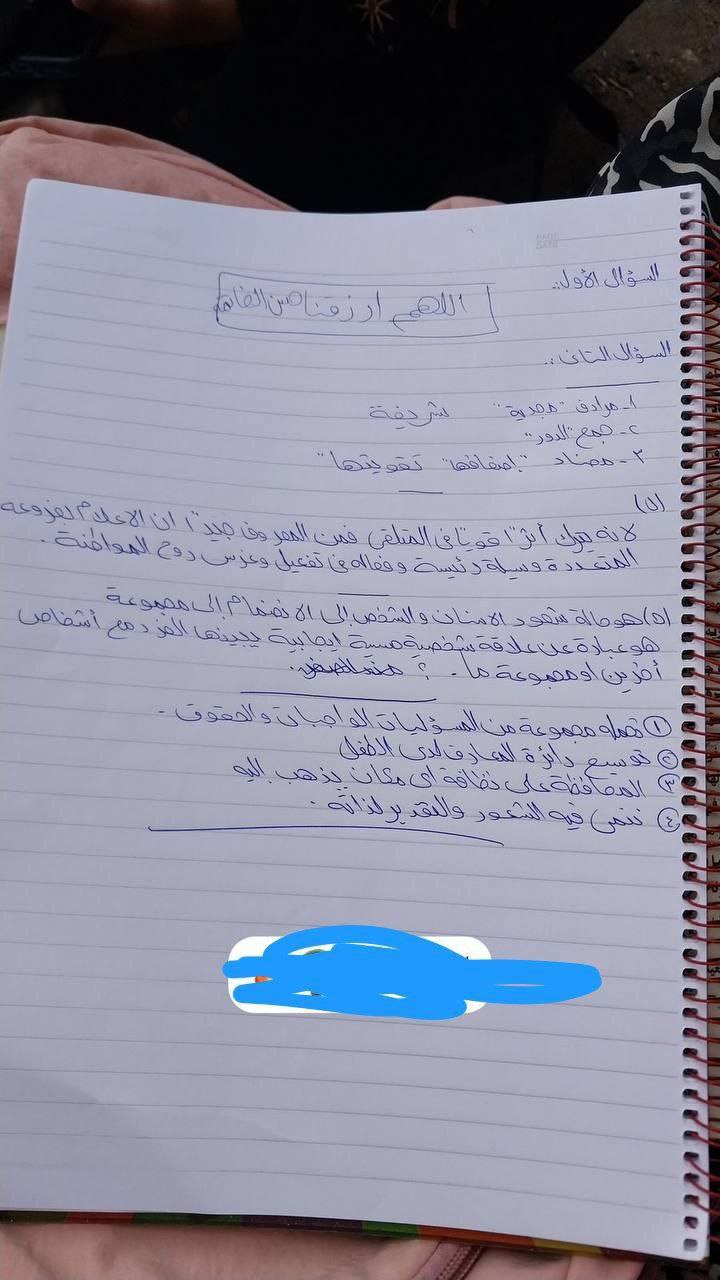 السؤال الأول:.
اللهم ارزقنا من
السؤال الثانى:.
١- مرادف "مجدية" شريفة
٢- جمع "الدور"
٣- مضاد "إضعافها" تقويتها"
(ن)
لانه يترك أثرًا قويًا فى المتلقى فمن المعروف جيدًا ان الاعلام بفروعه
المتعددة وسيلة رئيسة وفعاله فى تفعيل وغرس روح المواطنة.
(٥) هو حالة شعور الانسان والشخص إلى الانضمام إلى مجموعة
هو عبارة عن علاقة شخصية حسية إيجابية يبنيها الفرد مع أشخاص
أخرين او مجموعة ما. ؟
① تحمله مجموعة من المسؤليات الواجبات والحقوق.
② توسيع دائرة المعارف لدى الطفل
③ المحافظة على نظافة اى مكان يذهب إليه
④ ننمى فيه الشعور والتقدير لذاته.